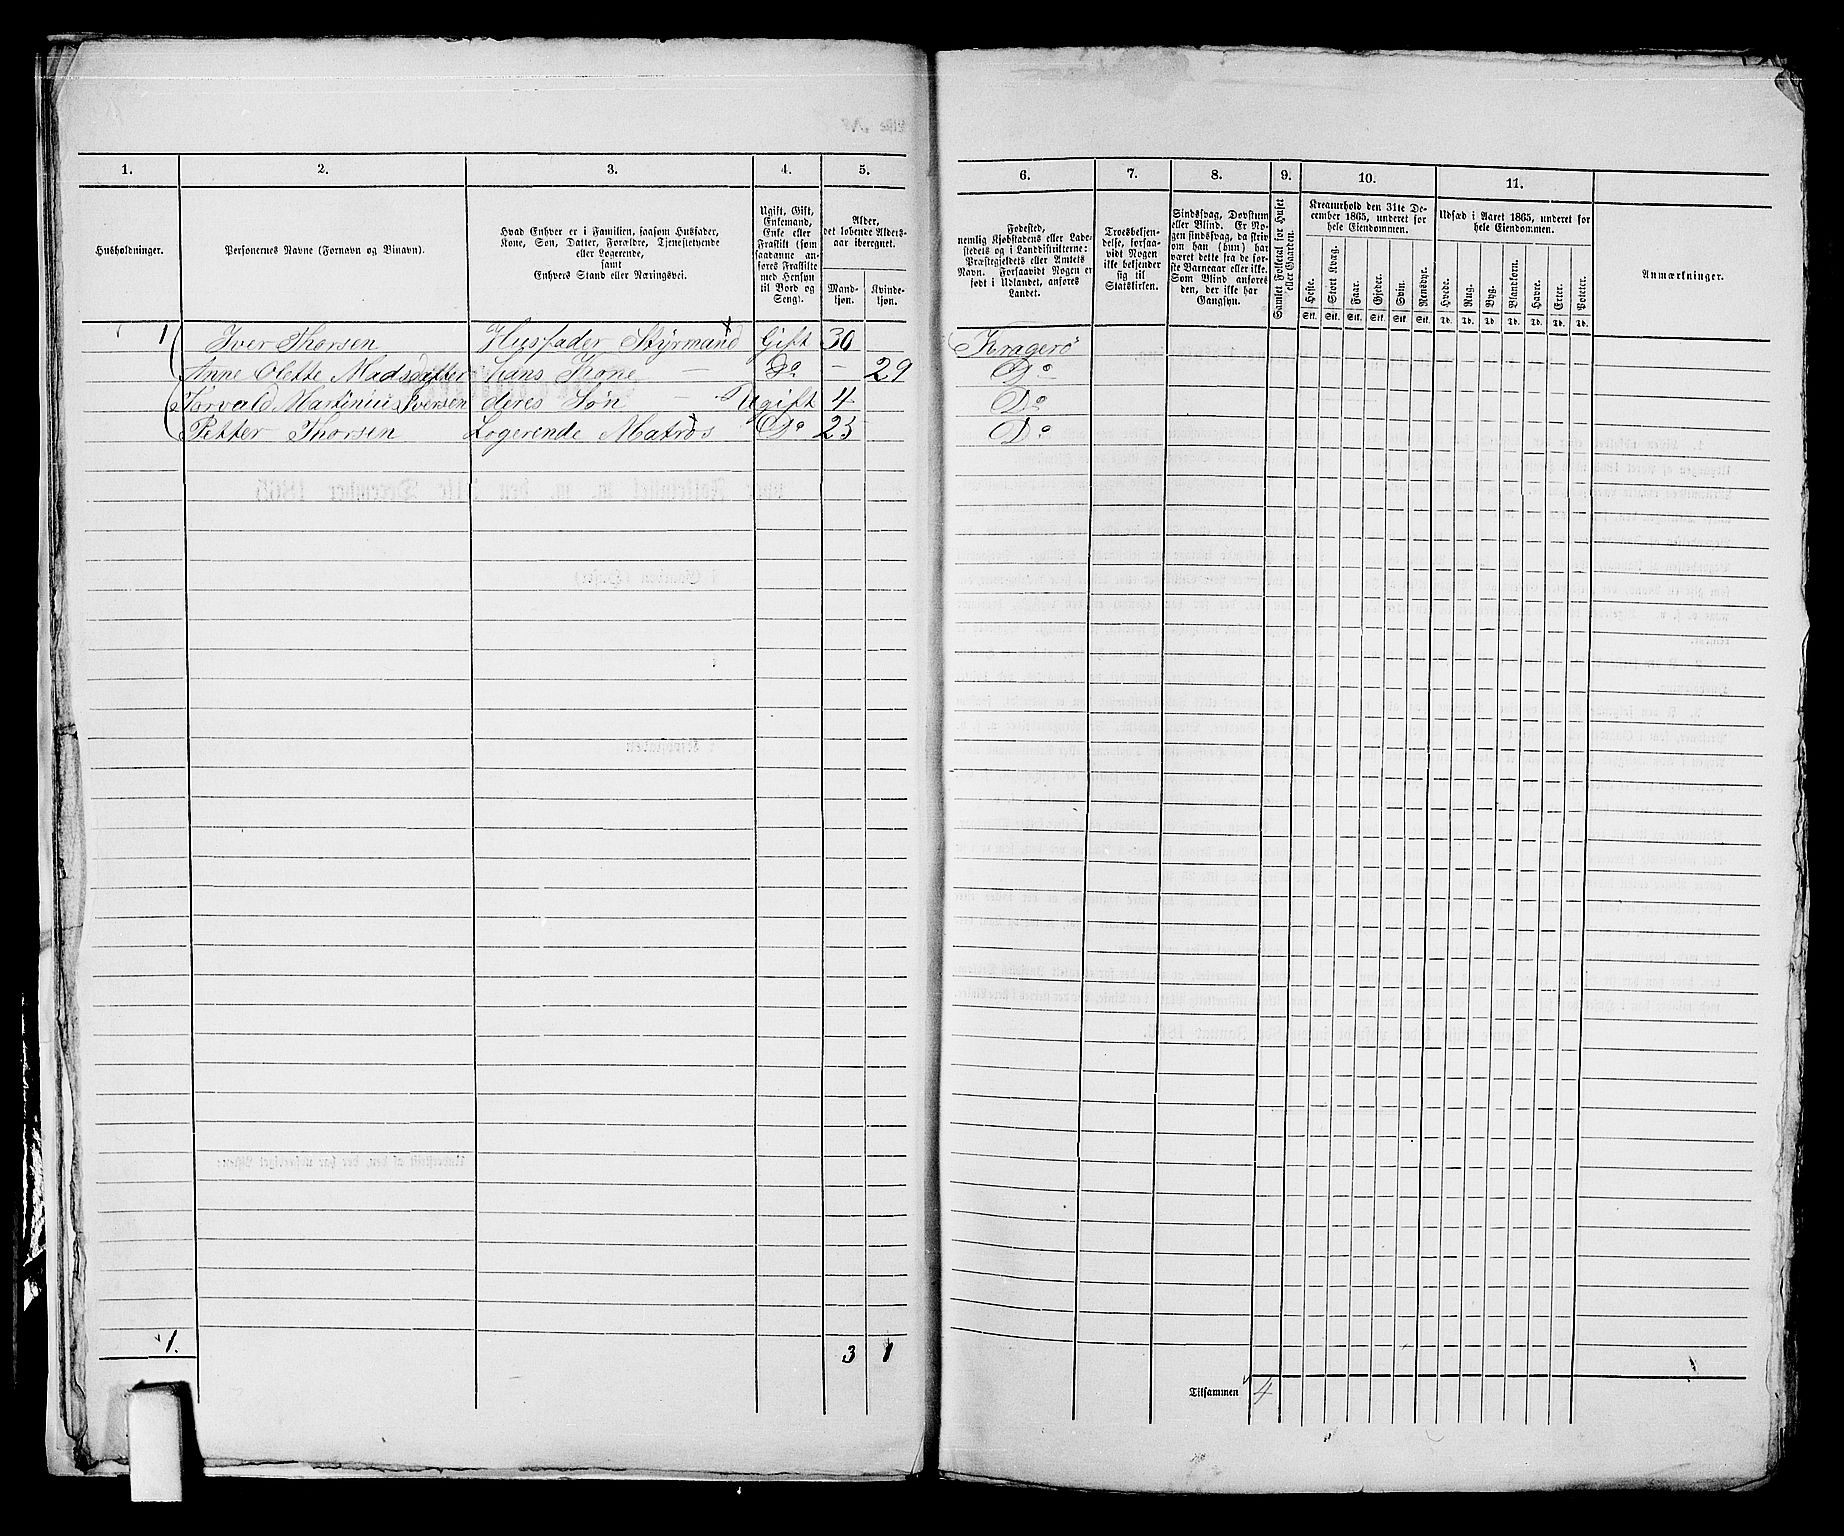 1.
2.
3.
4.
5.
Husholdninger.
Personernes Navne (Fornavn og Binavn).
Hvad Enhver er i Familien, saasom Husfader,
Kone, Søn, Datter, Forældre, Tjenestetyende
eller Logerende,
samt
Enhvers Stand eller Næringsvei.
Ugift, Gift,
Enkemand,
Enke eller
Fraskilt (som
saadanne anføres
Fraskilte
med Hensyn
til Bord og
Seng).
Alder,
det løbende Aldersaar
iberegnet.
Mandkjøn.
Kvindekjøn.
1 Iver Thorsen Husfader Styrmand Gift 30
Anne Olette Madsdatter hans Kone — Do — 29
Torvald Martinius Iversen deres Søn Ugift 4
Petter Thorsen Logerende Matros Do 23
1. 3 1
6.
7.
8.
9.
10.
11.
Fødested,
nemlig Kjøbstadens eller Ladestedets
og i Landdistrikterne:
Præstegjeldets eller Amtets
Navn. Forsaavidt Nogen er
født i Udlandet, anføres
Landet.
Troesbekjendelse,
forsaavidt
Nogen
ikke bekjender
sig til
Statskirken.
Sindssvag, Døvstum
eller Blind. Er Nogen
sindssvag, da skrives
om han (hun) har
været dette fra de første
Barneaar eller ikke.
Som Blind anføres
den, der ikke har
Gangsyn.
Samlet Folketal for Huset
eller Gaarden.
Kreaturhold den 31te December
1865, underet for
hele Eiendommen.
Heste. Stort Kvæg. Faar. Gjeder. Svin. Rensdyr.
Stk. Stk. Stk. Stk. Stk. Stk.
Udsæd i Aaret 1865, underet for
hele Eiendommen.
Hvede. Rug. Byg. Blandkorn. Havre. Erter. Poteter.
Td. Td. Td. Td. Td. Td. Td.
Anmærkninger.
Kragerö
Do
Do
Do
Tilsammen 4